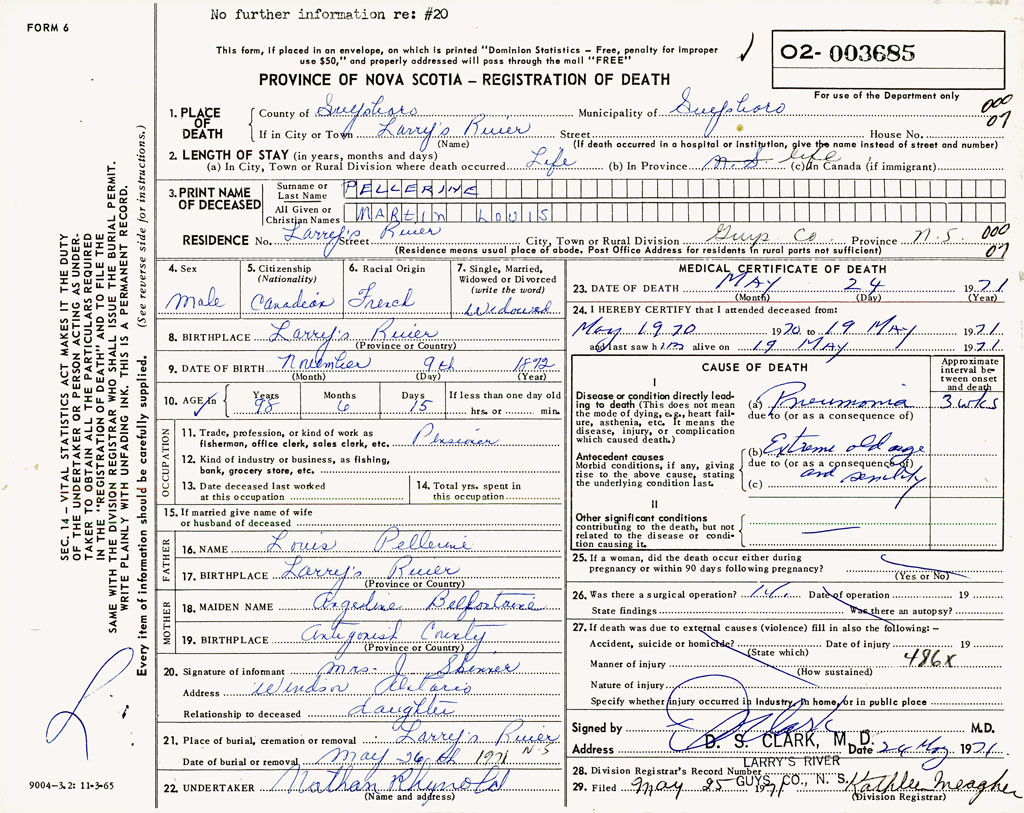 No further information re: #20
FORM 6
This form, if placed in an envelope, on which is printed "Dominion Statistics – Free, penalty for improper
use $50," and properly addressed will pass through the mail "FREE"
PROVINCE OF NOVA SCOTIA – REGISTRATION OF DEATH
02- 003685
For use of the Department only
1. PLACE OF DEATH
County of Guysboro Municipality of Guysboro
000
07
If in City or Town Larry's River Street House No.
(Name) (If death occurred in a hospital or institution, give the name instead of street and number)
2. LENGTH OF STAY (in years, months and days)
(a) In City, Town or Rural Division where death occurred Life (b) In Province N.S. life (c) In Canada (if immigrant)
3. PRINT NAME OF DECEASED
Surname or Last Name PELLERINE
All Given or Christian Names MARTIN LOUIS
RESIDENCE No. Larry's River Street City, Town or Rural Division Guys Co. Province N.S.
000
07
(Residence means usual place of abode. Post Office Address for residents in rural parts not sufficient)
4. Sex
Male
5. Citizenship
(Nationality)
Canadean
6. Racial Origin
French
7. Single, Married,
Widowed or Divorced
(write the word)
Widowed
8. BIRTHPLACE Larry's River
(Province or Country)
9. DATE OF BIRTH November 9th 1872
(Month) (Day) (Year)
10. AGE in
Years 98
Months 6
Days 15
If less than one day old
hrs. or min.
OCCUPATION
11. Trade, profession, or kind of work as
fisherman, office clerk, sales clerk, etc. Pensioner
12. Kind of industry or business, as fishing,
bank, grocery store, etc.
13. Date deceased last worked
at this occupation
14. Total yrs. spent in
this occupation
15. If married give name of wife
or husband of deceased
FATHER
16. NAME Louis Pellerine
17. BIRTHPLACE Larry's River
(Province or Country)
MOTHER
18. MAIDEN NAME Angeline Belfontaine
19. BIRTHPLACE Antigonish County
(Province or Country)
20. Signature of informant Mrs. J. Skinner
Address Windsor Ontario
Relationship to deceased daughter
21. Place of burial, cremation or removal Larry's River
N.S
Date of burial or removal May 26th 1971
22. UNDERTAKER Nathan Rhynold
(Name and address)
MEDICAL CERTIFICATE OF DEATH
23. DATE OF DEATH MAY 24 1971
(Month) (Day) (Year)
24. I HEREBY CERTIFY that I attended deceased from:
May 1970 1970 to 19 MAY 1971
and last saw him alive on 19 MAY 1971
CAUSE OF DEATH
Approximate
interval be-
tween onset
and death
I
Disease or condition directly lead-
ing to death (This does not mean
the mode of dying, e.g., heart fail-
ure, asthenia, etc. It means the
disease, injury, or complication
which caused death.)
(a) Pneumonia 3 wks
due to (or as a consequence of)
Antecedent causes
Morbid conditions, if any, giving
rise to the above cause, stating
the underlying condition last.
(b) Extreme old age
due to (or as a consequence of)
and senility
(c)
II
Other significant conditions
contributing to the death, but not
related to the disease or condi-
tion causing it.
25. If a woman, did the death occur either during
pregnancy or within 90 days following pregnancy?
(Yes or No)
26. Was there a surgical operation? Date of operation 19
State findings Was there an autopsy?
27. If death was due to external causes (violence) fill in also the following: –
Accident, suicide or homicide? Date of injury 19
(State which) 486X
Manner of injury
(How sustained)
Nature of injury
Specify whether injury occurred in Industry, in home, or in public place
Signed by D S Clark M.D.
D. S. CLARK, M. D.
Address Date 24 May 1971
LARRY'S RIVER
28. Division Registrar's Record Number
GUYS. CO., N. S.
29. Filed May 25 1971 Kathleen Meagher
(Division Registrar)
SEC. 14 – VITAL STATISTICS ACT MAKES IT THE DUTY
OF THE UNDERTAKER OR PERSON ACTING AS UNDER-
TAKER TO OBTAIN ALL THE PARTICULARS REQUIRED
IN THE "REGISTRATION OF DEATH" AND TO FILE THE
SAME WITH THE DIVISION REGISTRAR WHO SHALL ISSUE THE BURIAL PERMIT.
WRITE PLAINLY WITH UNFADING INK. THIS IS A PERMANENT RECORD.
Every item of information should be carefully supplied. (See reverse side for instructions.)
9004–3.2: 11-3-65